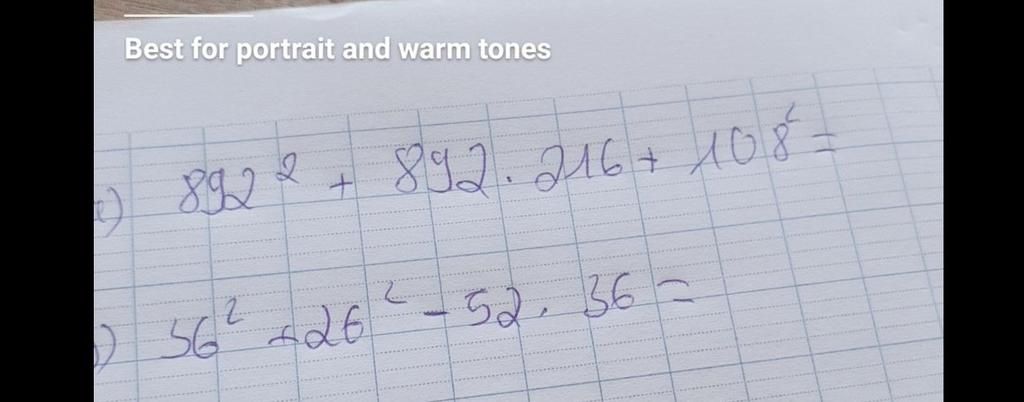 Best for portrait and warm tones
c) 892² + 892 . 216 + 108² =
) 36² + 26² - 52 . 36 =